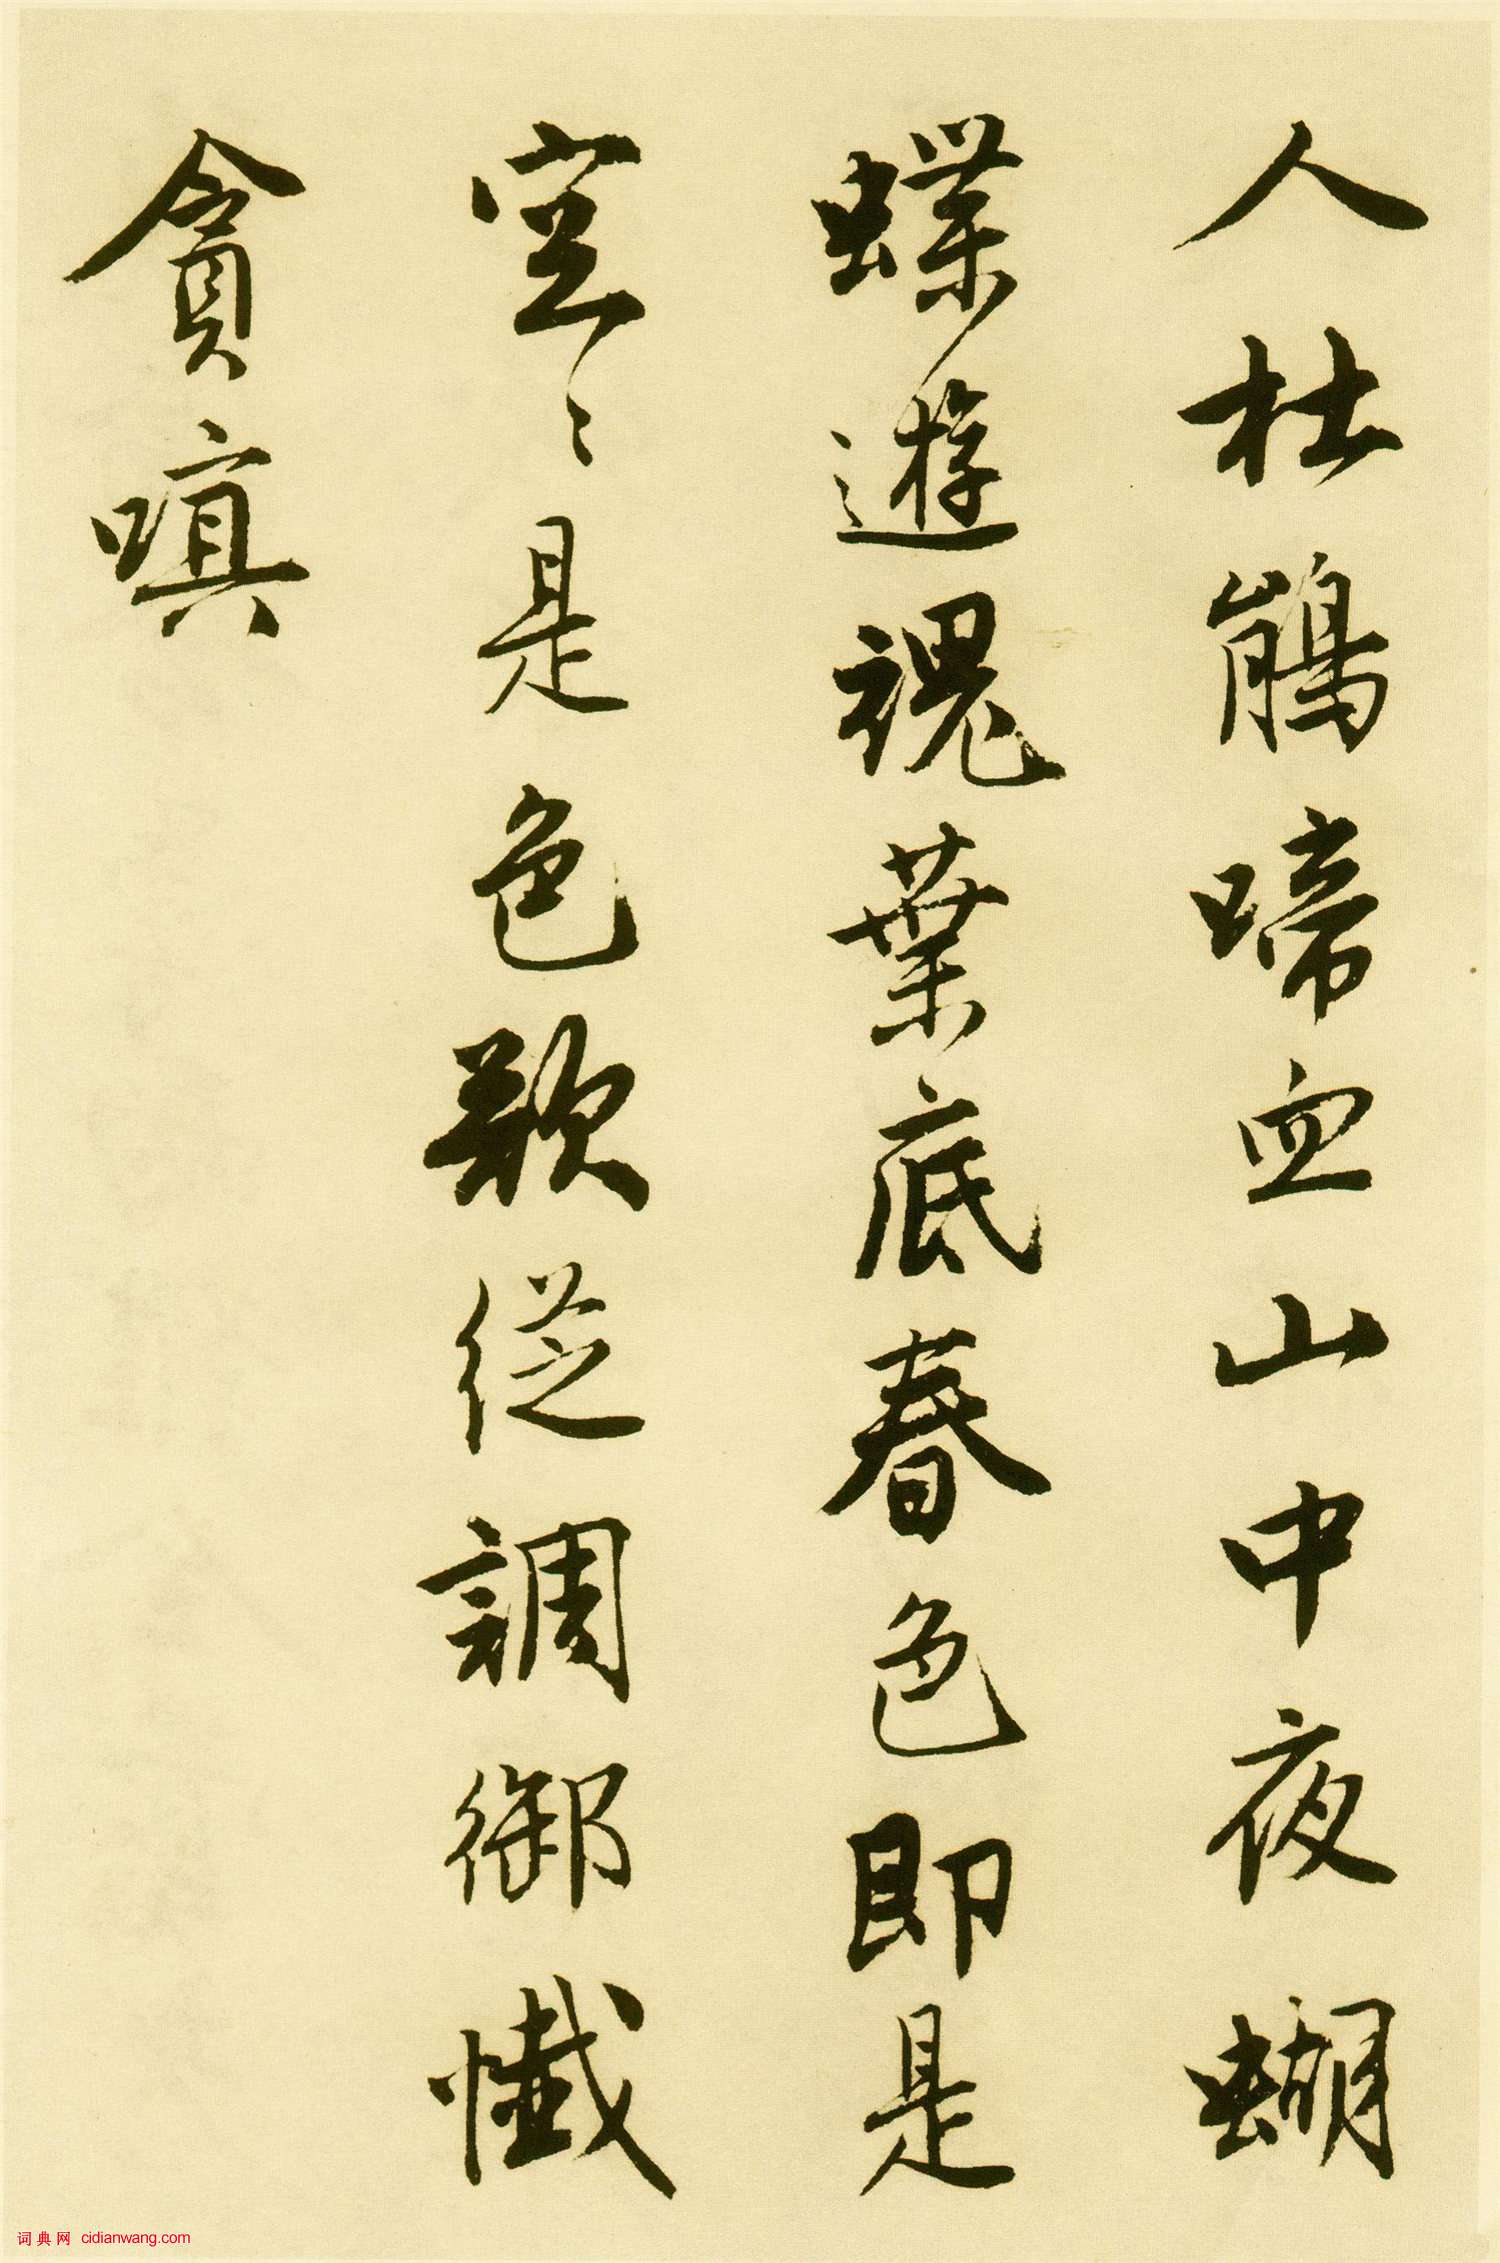 人杜鵑啼血山中夜蝴
蝶遊魂葉底春色即是
空〻是色歌從調御懺
貪嗔
词典网 cidianwang.com